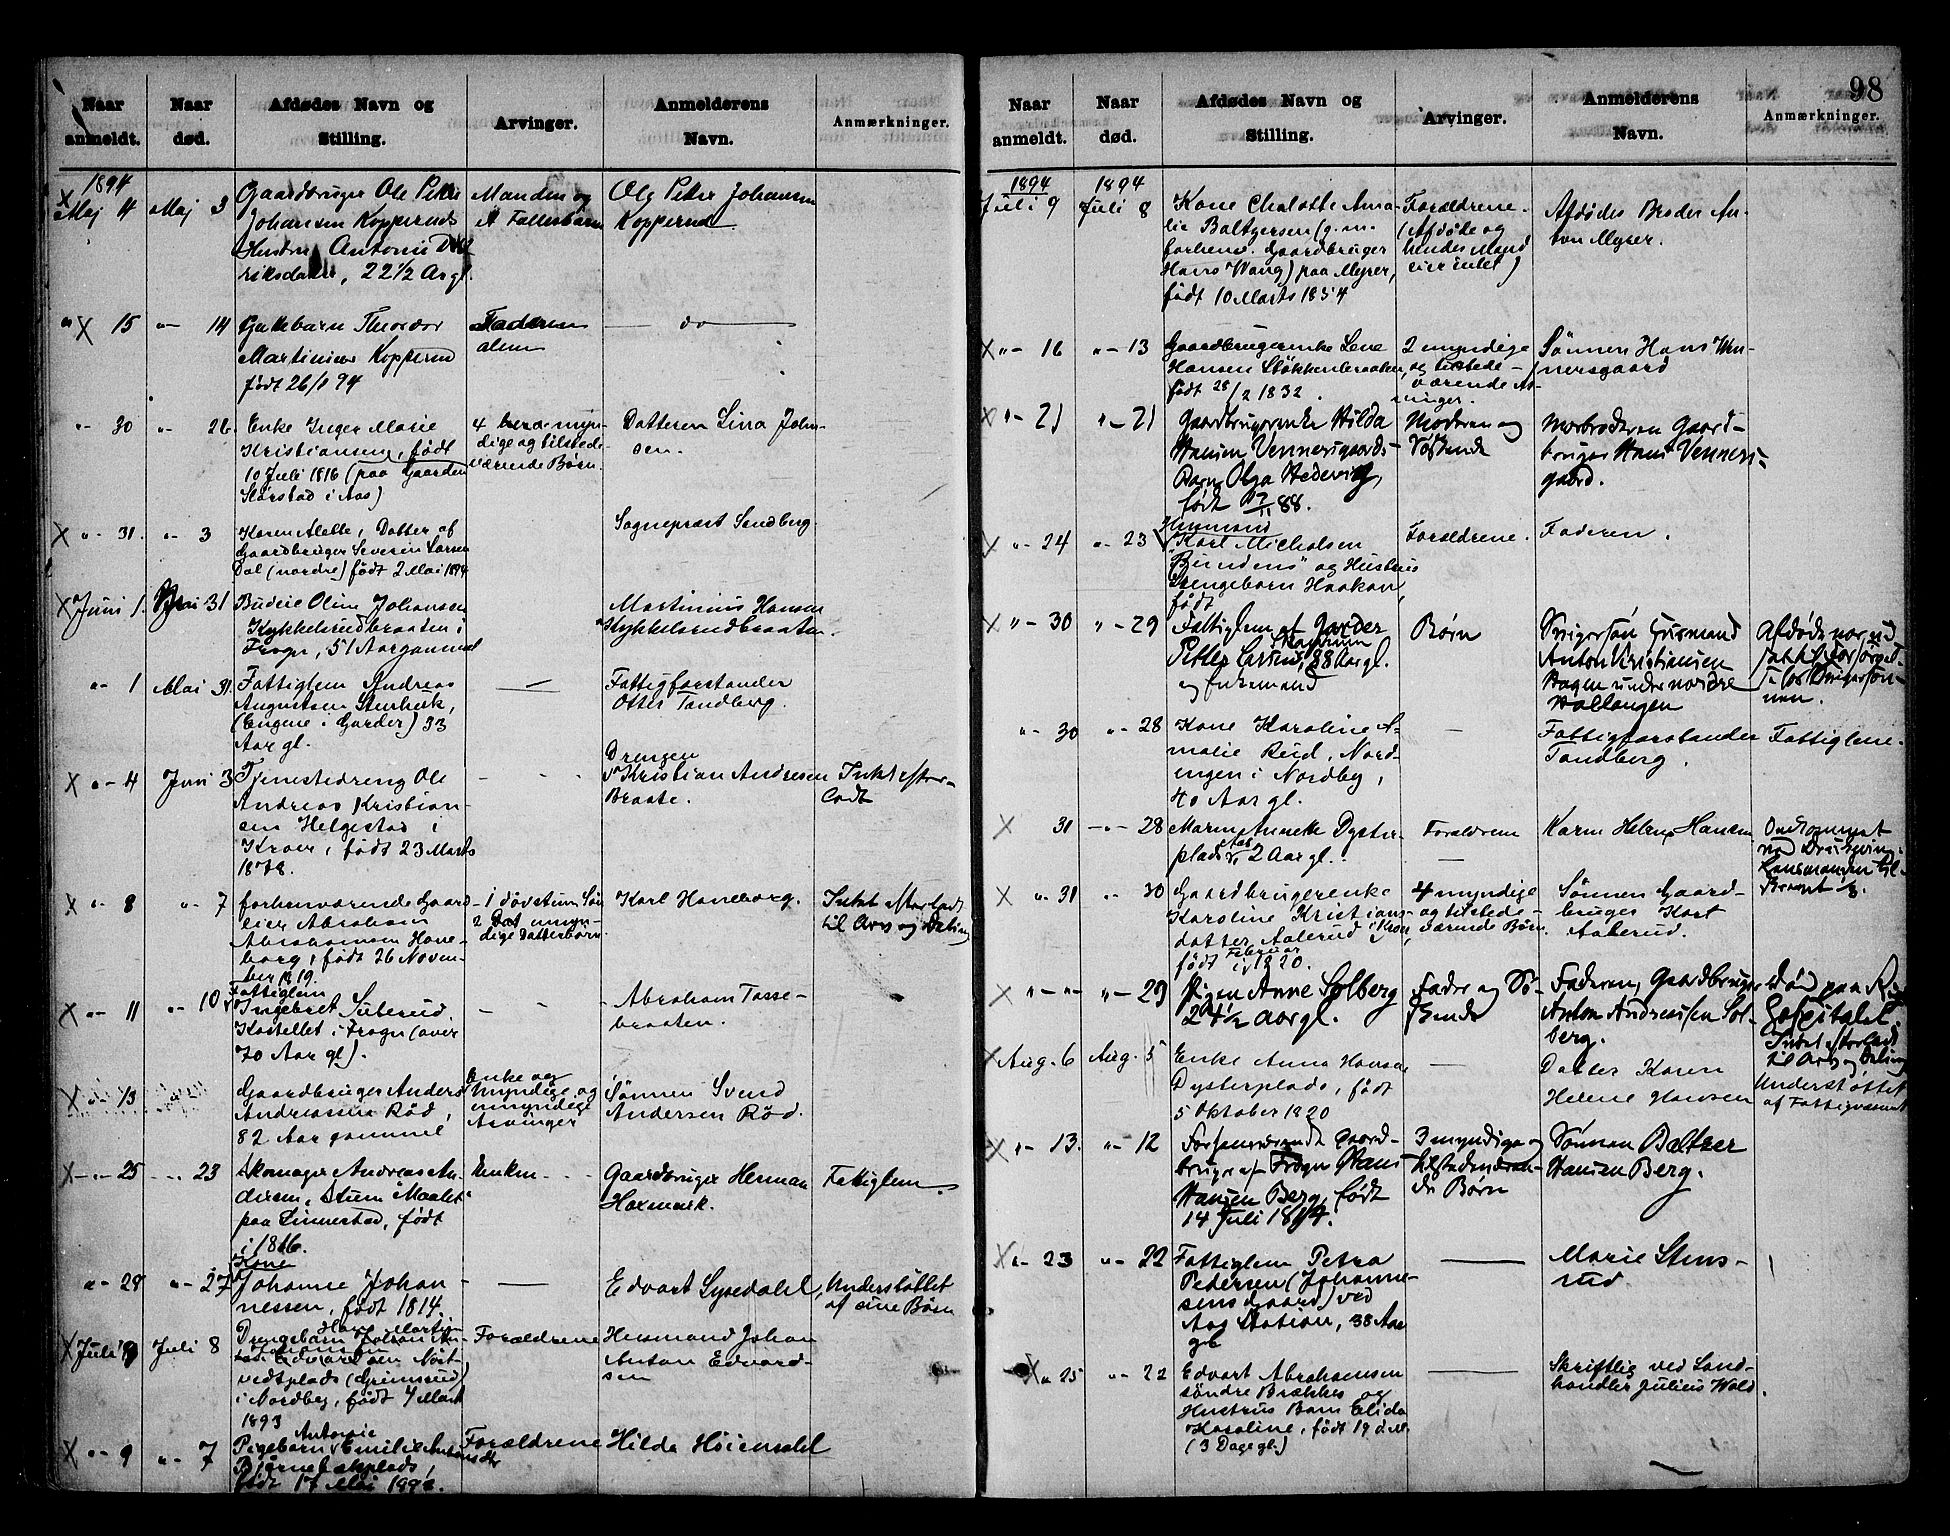 Naar anmeldt.
Naar død.
Afdødes Navn og Stilling.
Arvinger.
Anmelderens Navn.
Anmærkninger.
1894
Maj 4
Maj 3
Gaardbruger Ole Petter
Johansen Kopperuds
Hustru Antonie
22 1/2 Aar gl.
Manden og
Fællesbarn
Ole Peter Johansen
Kopperud
" 15
" 14
Thordor
Martinius Kopperud
født 26/1 94
Faderen
alene
do
" 30
" 26
Enke Inger Marie
Kristiansen, født
10 Juli 1816 (paa Gaarden
i Aas)
4 myn-
dige og tilstede-
værende Børn
Datteren Lina Johan-
sen.
" 31.
" 3
Karen Alette, Datter af
Gaardbruger Severin Larsen
Dal (nordre) født 2 Mai 1894
Sogneprest Sandberg
Juni 1.
Mai 31
Budeie Oline Johansen
Kykkelsrudbraaten i
Frogn, 51 Aar gammel
Martinius Hansen
Kykkelsrudbraaten.
" 1
Mai 31.
Fattiglem Andreas
Augustsen
(Engene i Garder) 33
Aar gl.
Fattigforstander
Otter Tandberg.
" 4
Juni 3
Tjenestedreng Ole
Andreas Kristian-
sen Helgestad i
Kroer, født 23 Marts
1878.
Drengen
Kristian Andresen
Braate.
Intet efter-
ladt
" 8
" 7
forhenværende Gaard-
eier Abraham
Abrahamsen Hane-
borg, født 26 Novem-
ber 1819.
1 døvstum Søn
2 umyn-
dige Datterbørn
Karl Haneborg.
Intet efterladt
til Arv og Deling
" 11
" 10
Fattiglem
Ingebret
Kastellet i Frogn (over
70 Aar gl).
Abraham Tasse-
braaten.
" 13
Gaardbruger Anders
Andreassen Rød,
82 Aar gammel
Enke og
Myndige og
umyndige
Arvinger
Sønnen Svend
Andersen Rød.
" 25
" 23
Skomager Andreas An-
dersen,
paa Sinnestad, født
i 1816.
Enken
Gaardbruger Herman
Haxmark.
Fattiglem.
" 28
" 27
Kone
Johanne Johan-
nessen, født 1814.
Edvart Sysedahl,
Understøttet
af sine Børn
Juli 9
Juli 8
Drengebarn Hans Martin
Johansen
vedtplads (Grimsrud)
i Nordby, født 4 Mart
1893
Forældrene
Husmand Johan
Anton Edvard-
sen
" 9
" 7
Antonie
Pigebarn Emilie
født 17 Mai
Forældrene
Hilda Høiendahl
98
Naar anmeldt.
Naar død.
Afdødes Navn og Stilling.
Arvinger.
Anmelderens Navn.
Anmærkninger.
1894
1894
Juli 9
Juli 8
Kone Chalotte Ama-
lie Baltzersen (g. m.
forhenv. Gaardbruger
Hans Wang) paa Myrer,
født 10 Marts 1854
Forældrene.
(Afdøde og
hendes Mand
eier intet)
Afdødes Broder An-
ton Myrer.
" 16
" 13
Gaardbrugerenke Lene
Hansen Støkkenbraaten,
født 28/2 1832.
2 myndige
og tilstede-
værende Ar-
vinger.
Sønnen Hans Wen-
nersgaard
" 21
" 21
Gaardbrugerenke Hilda
Hansen Vennersgaards
Barn Olga Hedevig,
født 17/11 88.
Moderen og
Søskende
Morbroderen Gaard-
bruger Hans Venners-
gaard.
" 24
" 23
Husmand
Karl Michelsen
"Bundens" og Hustrus
Drengebarn Haakon,
født
Forældrene.
Faderen.
" 30
" 29
Fattiglem af Garder
Petter Larsen, 88 Aar gl.
og Enkemand
Børn
Svigersøn Husmand
Anton Kristiansen
Hagen under nordre
Hallangen
Afdøde var ved
" 30
" 28
Kone Karoline A-
malie Rud, Nord-
engen i Nordby,
40 Aar gl.
Fattigforstander
Tandberg.
Fattiglem.
31
" 28
Maren Annette Dyster-
plads 2 Aar gl.
Forældrene
Karen Helene Hansen
Omkommet
ved Drukning.
" 31
" 30
Gaardbrugerenke
Karoline Kristians-
datter Aalerud i Kroer,
født Februar
1820.
4 myndige
og tilstede-
værende Børn
Sønnen Gaard-
bruger Karl
Aalerud.
" "
" 29
Pigen Anne Solberg
24 1/2 Aar gl.
Fader og Sø-
skende
Faderen, Gaardbruger
Anton Andreassen Sol-
berg.
død paa Rigs-
hospitalet.
Intet efterladt
til Arv og Deling
Aug. 6
Aug. 5
Enke Anna Hansen
Dysterplads, født
5 Oktober 1820
Datter Karen
Helene Hansen
Understøttet
af Fattigvæsenet
" 13.
" 12
Forhenværende Gaard-
bruger af Frogn Hans
Hansen Berg, født
14 Juli 1814.
3 myndige og
tilstedeværen-
de Børn
Sønnen Baltzer
Hansen Berg.
" 23
" 22
Fattiglem Petra
Pedersen (Johanne-
sens Gaard) ved
Aas Station, 38 Aar
gl.
Marie Stens-
rud.
" 25
" 22
Edvart Abrahamsen
søndre Brækkes og
Hustrus Barn Elida
Haraline, født 19 d.M.
(3 Dage gl.)
Skriftlig ved Land-
handler Julius Wold.